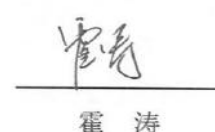 霍涛
霍涛